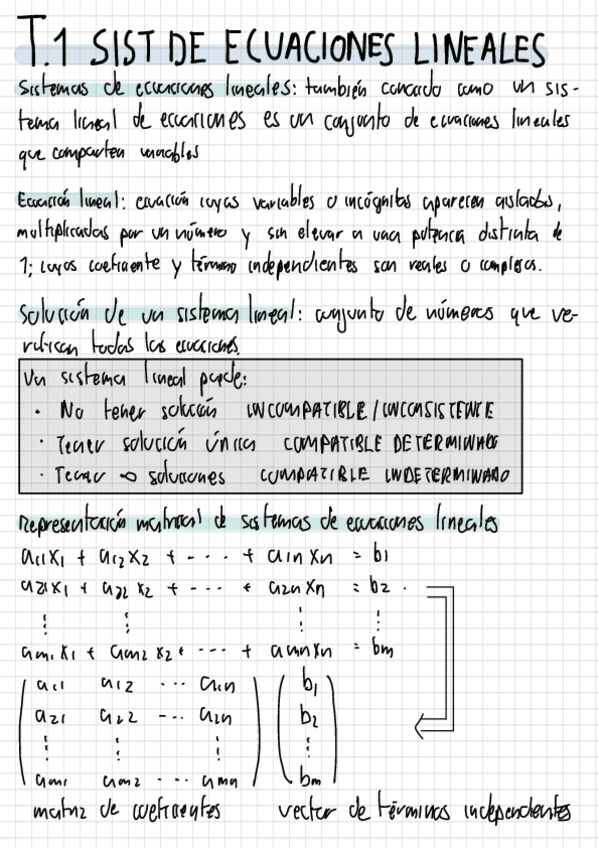 T.1 SIST DE ECUACIONES LINEALES
Sistemas de ecuaciones lineales: también conocido como un sis-
tema lineal de ecuaciones es un conjunto de ecuaciones lineales
que comparten variables
Ecuación lineal: ecuación cuyas variables o incógnitas aparecen aisladas,
multiplicadas por un número y sin elevar a una potencia distinta de
1; cuyos coeficiente y término independientes son reales o complejos.
Solución de un sistema lineal: conjunto de números que ve-
rifican todas las ecuaciones.
Un sistema lineal puede:
· No tener solución INCOMPATIBLE/INCONSISTENTE
· Tener solución única COMPATIBLE DETERMINADO
· Tener ∞ soluciones COMPATIBLE INDETERMINADO
Representación matricial de sistemas de ecuaciones lineales
a11x1 + a12x2 + ---- + a1nxn = b1
a21x1 + a22x2 + ---- + a2nxn = b2
⋮ ⋮ ⋮ ⋮
am1x1 + am2x2 + ---- + amnxn = bm
a11 a12 ... a1n b1
a21 a22 --- a2n b2
⋮ ⋮ ⋮ ⋮
am1 am2 ... amn bm
matriz de coeficientes vector de términos independientes